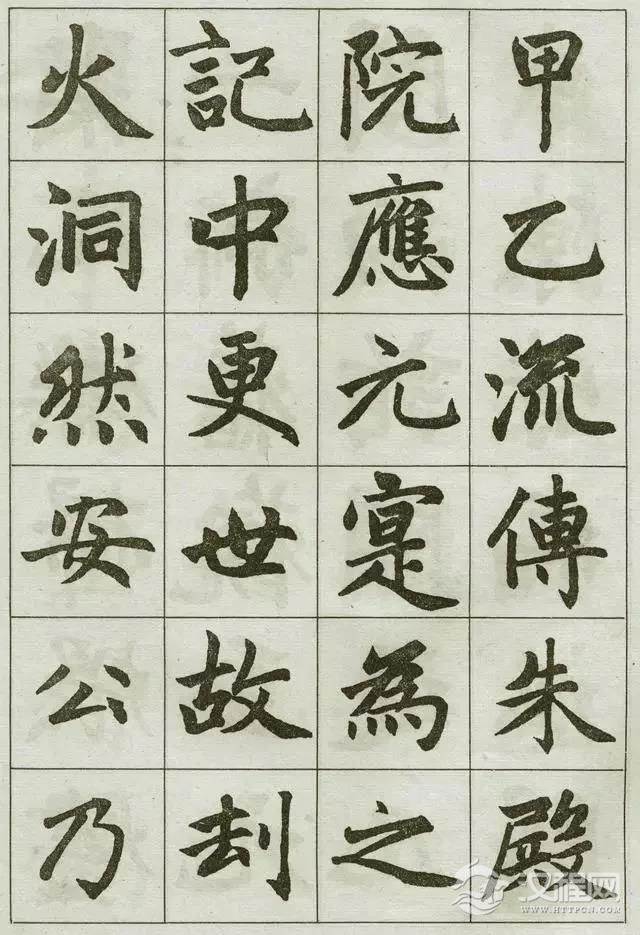 甲乙流傳朱殿
院應元寔為之
記中更世故刦
火洞然安公乃
汉程网
WWW.HTTPCN.COM